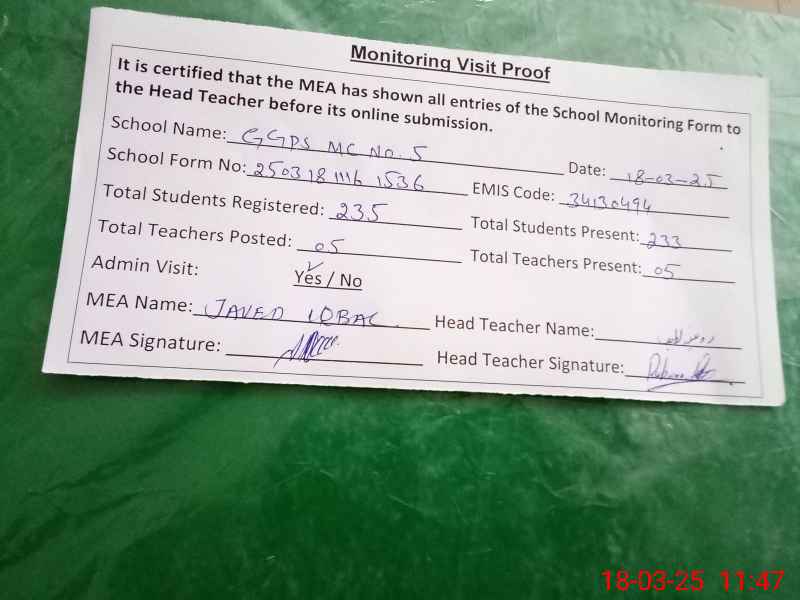 Monitoring Visit Proof
It is certified that the MEA has shown all entries of the School Monitoring Form to
the Head Teacher before its online submission.
School Name: GGPS MC No. 5 Date: 18-03-25
School Form No: 25031811161536 EMIS Code: 34130494
Total Students Registered: 235 Total Students Present: 233
Total Teachers Posted: 05 Total Teachers Present: 05
Admin Visit: Yes / No
MEA Name: JAVED IQBAL Head Teacher Name:
MEA Signature: Head Teacher Signature:
18-03-25 11:47